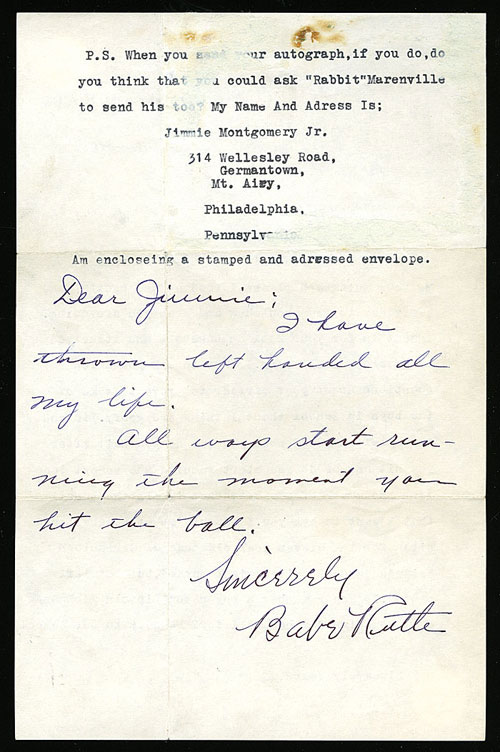 P.S. When you send your autograph,if you do,do
you think that you could ask "Rabbit"Marenville
to send his too? My Name And Adress Is;
Jimmie Montgomery Jr.
314 Wellesley Road,
Germantown,
Mt. Airy,
Philadelphia,
Pennsylvania
Am encloseing a stamped and adressed envelope.
Dear Jimmie;
I have
thrown left handed all
my life.
All ways start run-
ning the moment you
hit the ball.
Sincerely
Babe Ruth